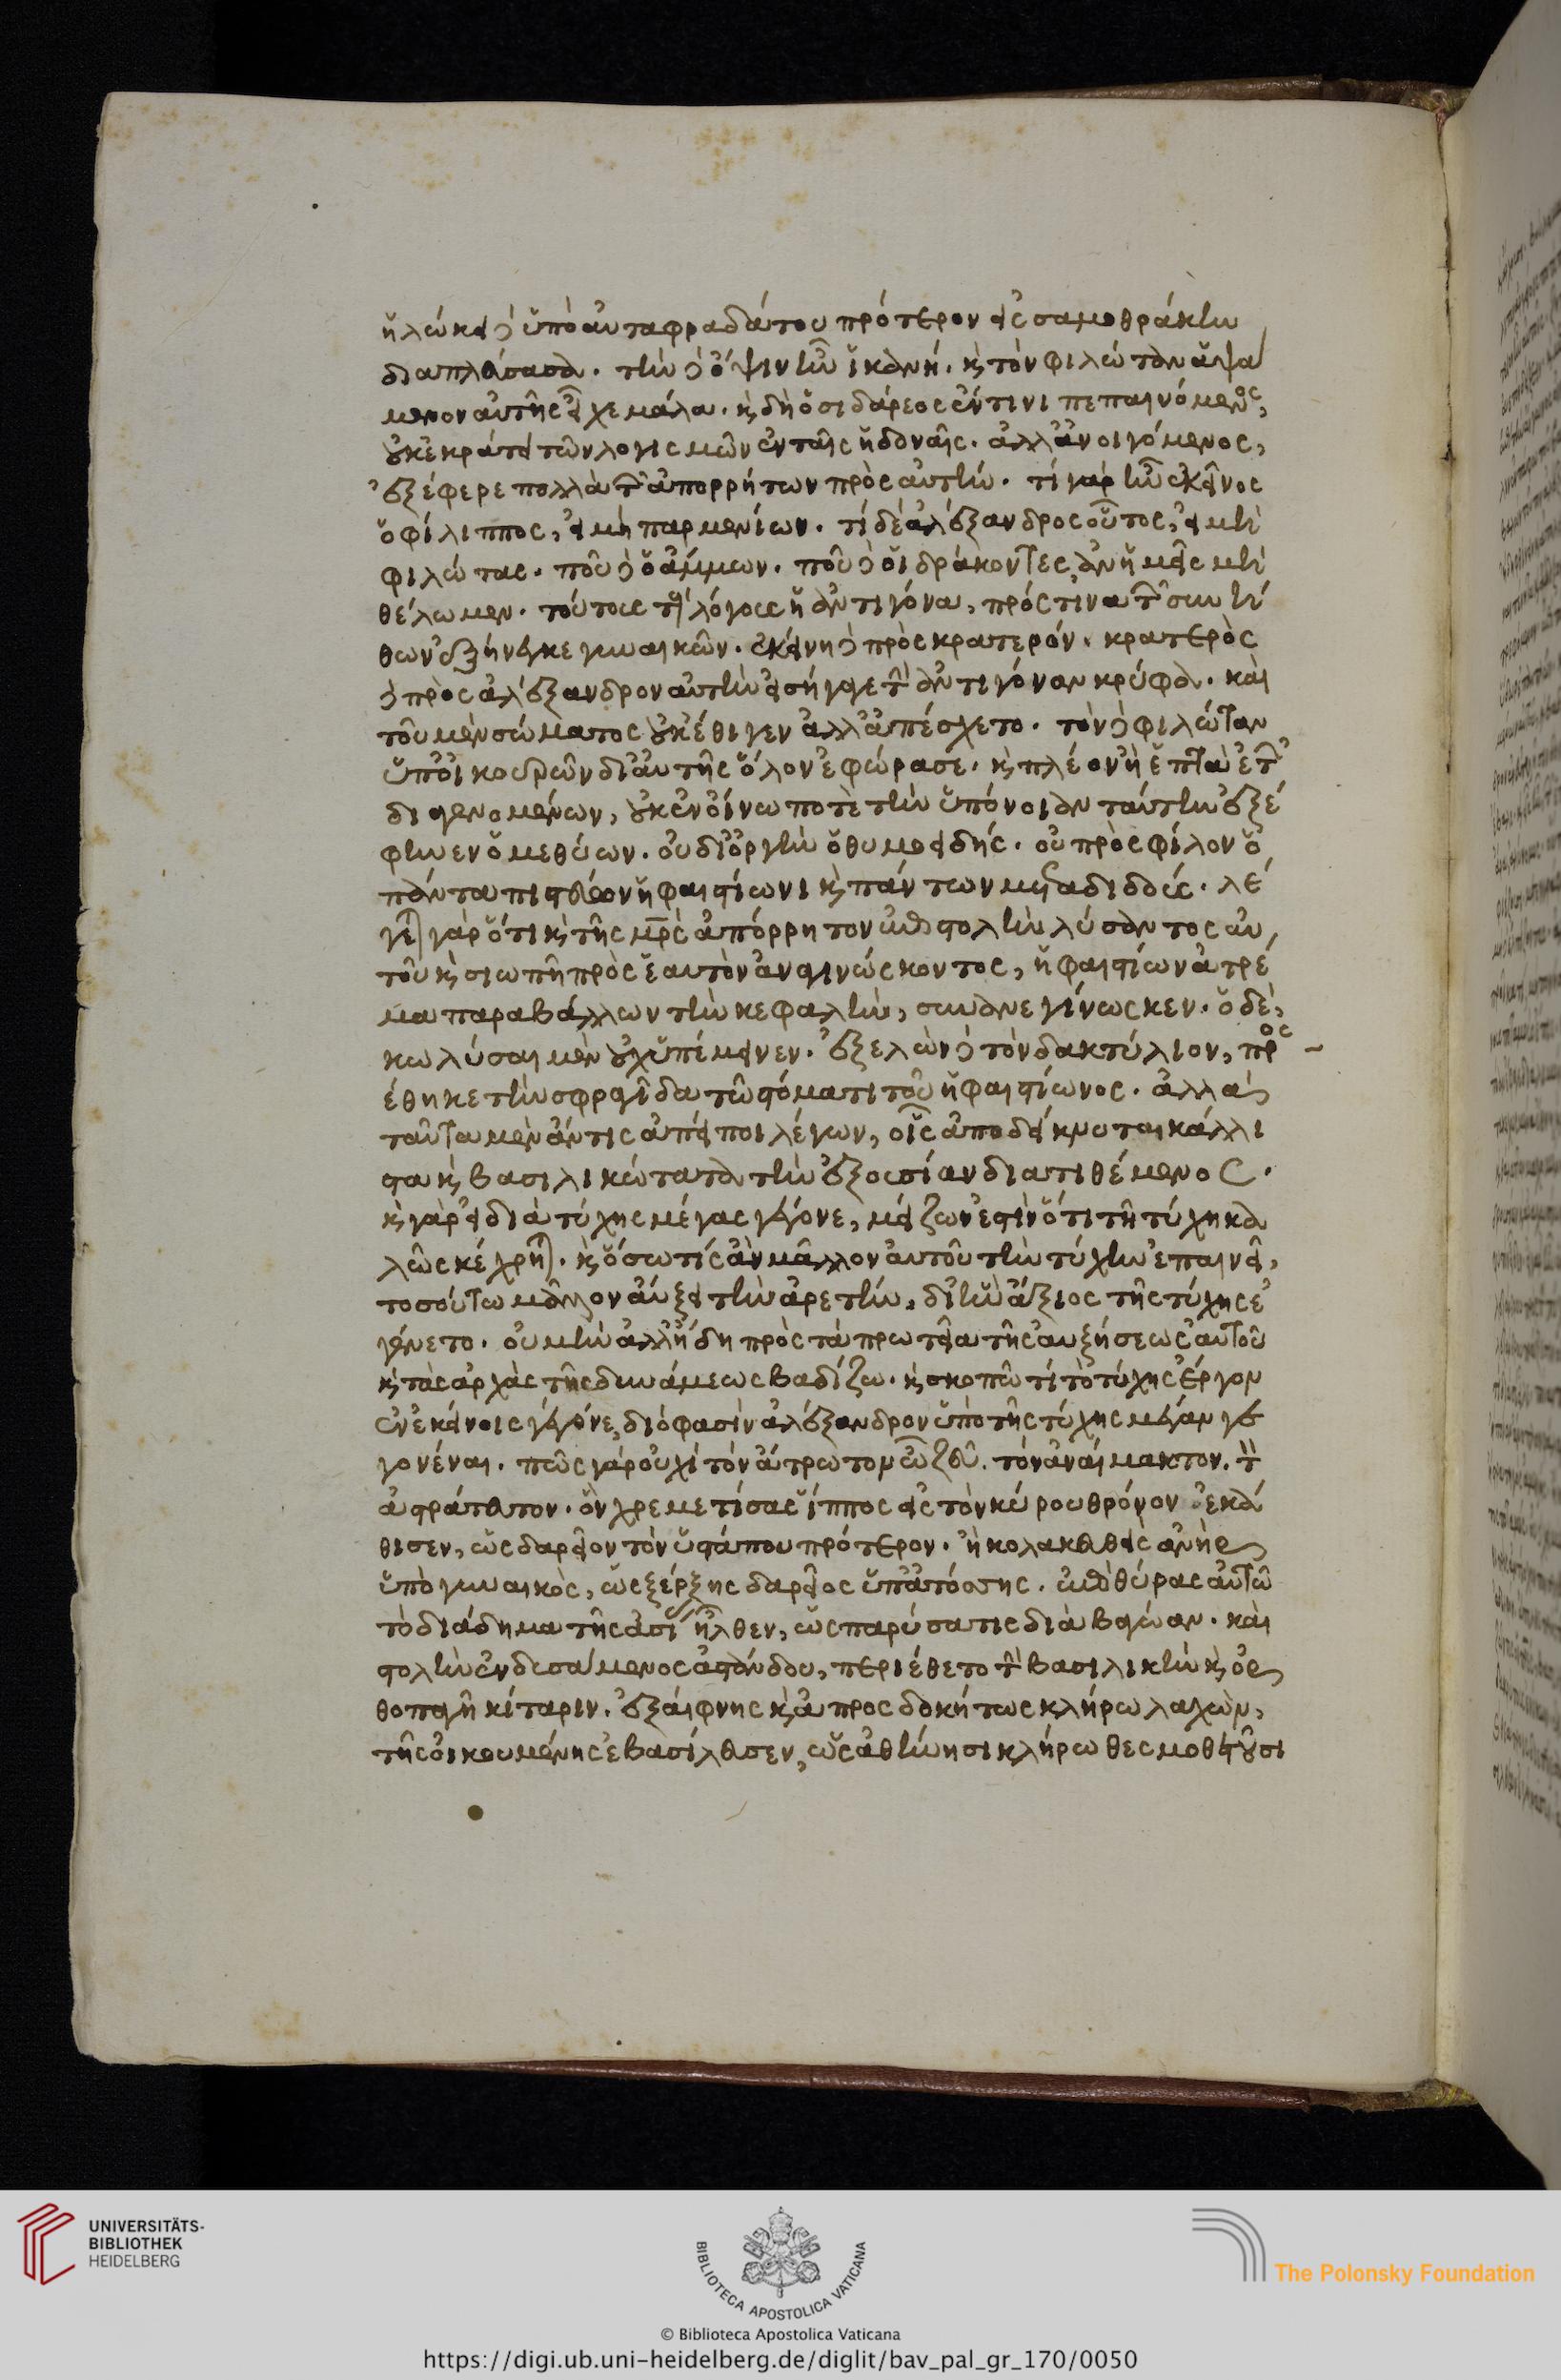 ἥλω κεῖ δ ὑπὸ αὐταφραδάτου πρότερον εἰς σαμοθράκην
διαπλεύσασα. τὴν δ ὄψιν ἦν ἱκανή. ϗ τὸν φιλώταν ἁψά
μενον αὐτῆς εἶχε μάλα. ϗ δὴ ὁ σιδάρεος ἔν τινι πεπαινόμενος,
οὐκ ἐκράτει τῶν λογισμῶν ἐν ταῖς ἡδοναῖς. ἀλλ' ἀνοιγόμενος,
ἐξέφερε πολλὰ τῶν ἀπορρήτων πρὸς αὐτήν. τί γὰρ ἦν ἐκεῖνος
ὁ φίλιππος, εἰ μὴ παρμενίων. τί δὲ ἀλέξανδρος οὗτος, εἰ μὴ
φιλώτας. ποῦ δ ὁ ἄμμων. ποῦ δ οἱ δράκοντες, ἂν ἡμεῖς μὴ
θέλωμεν. τούτους τοὺς λόγους ἡ ἀντιγόνα, πρός τινα τῶν συνή
θων ἐξήνεγκε γυναικῶν. ἐκείνη δ πρὸς κρατερόν. κρατερὸς
δ πρὸς ἀλέξανδρον αὐτὴν εἰσήγαγε τὴν ἀντιγόναν κρύφα. καὶ
τοῦ μὲν σώματος οὐκ ἔθιγεν ἀλλ' ἀπέσχετο. τὸν δ φιλώταν
ὑποικουρῶν δι' αὐτῆς ὅλον ἐφώρασε. ϗ πλέον ἢ ἑπτὰ ἐτῶν
διαγενομένων, οὐκ ἐν οἴνῳ ποτὲ τὴν ὑπόνοιαν ταύτην ἐξέ
φηνεν ὁ μεθύων. οὐ δι' ὀργὴν ὁ θυμοειδής. οὐ πρὸς φίλον ὁ
πάντα πιστεύων ἡφαιστίωνι ϗ πάντων μεταδιδούς. λέ
γεται γὰρ ὅτι ϗ τῆς μρς ἀπόρρητον ἐπιστολὴν λύσαντος αὐ
τοῦ ϗ σιωπῇ πρὸς ἑαυτὸν ἀναγινώσκοντος, ἡφαιστίων ἀτρέ
μα παραβάλλων τὴν κεφαλὴν, συνανεγίνωσκεν. ὁ δὲ,
κωλῦσαι μὲν οὐχ ὑπέμεινεν. ἐξελὼν δ τὸν δακτύλιον, προσ
έθηκε τὴν σφραγῖδα τῷ στόματι τοῦ ἡφαιστίωνος. ἀλλὰ
ταῦτα μὲν ἄν τις ἀπείποι λέγων, οἷς ἀποδείκνυται κάλλι
στα ϗ βασιλικώτατα τὴν ἐξουσίαν διατιθέμενος.
ϗ γὰρ εἰ διὰ τύχης μέγας γέγονε, μείζων ἐστὶν ὅτι τῇ τύχῃ κα
λῶς κέχρηται. ϗ ὅσῳ τίς ἂν μᾶλλον αὐτοῦ τὴν τύχην ἐπαινεῖ,
τοσούτῳ μᾶλλον αὔξει τὴν ἀρετὴν, δι' ἣν ἄξιος τῆς τύχης ἐ
γένετο. οὐ μὴν ἀλλ' ἤδη πρὸς τὰ πρωτεῖα τῆς αὐξήσεως αὐτοῦ
ϗ τὰς ἀρχὰς τῆς δυνάμεως βαδίζω. ϗ σκοπῶ τί τὸ τύχης ἔργον
ἐν ἐκείνοις γέγονε, διό φασιν ἀλέξανδρον ὑπὸ τῆς τύχης μέγαν γε
γονέναι. πῶς γὰρ οὐχὶ τὸν ἄτρωτον ὦ ζεῦ. τὸν ἀναίμακτον. τὸν
ἀστράτευτον. ὃν χρεμετίσας ἵππος εἰς τὸν κύρου θρόνον ἐκά
θισεν, ὡς δαρεῖον τὸν ὑστάπου πρότερον. ἢ κολακευθεὶς ἀνὴρ
ὑπὸ γυναικὸς, ὡς ξέρξης δαρεῖος ὑπ' ἀτόσσης. ἐπὶ θύρας αὐτῷ
τὸ διάδημα τῆς ἀσίας ἦλθεν, ὡς παρύσατις διὰ βαγώαν. καὶ
στολὴν ἐνδυσάμενος ἀστάνδου, περιέθετο τὴν βασιλικὴν ϗ ὀρ
θοπαγῆ κίταριν. ἐξαίφνης ϗ ἀπροσδοκήτως κλήρῳ λαχὼν,
τῆς οἰκουμένης ἐβασίλευσεν, ὡς ἀθήνησι κλήρῳ θεσμοθετοῦσι
UNIVERSITÄTS-
BIBLIOTHEK
HEIDELBERG
BIBLIOTECA APOSTOLICA VATICANA
The Polonsky Foundation
© Biblioteca Apostolica Vaticana
https://digi.ub.uni-heidelberg.de/diglit/bav_pal_gr_170/0050